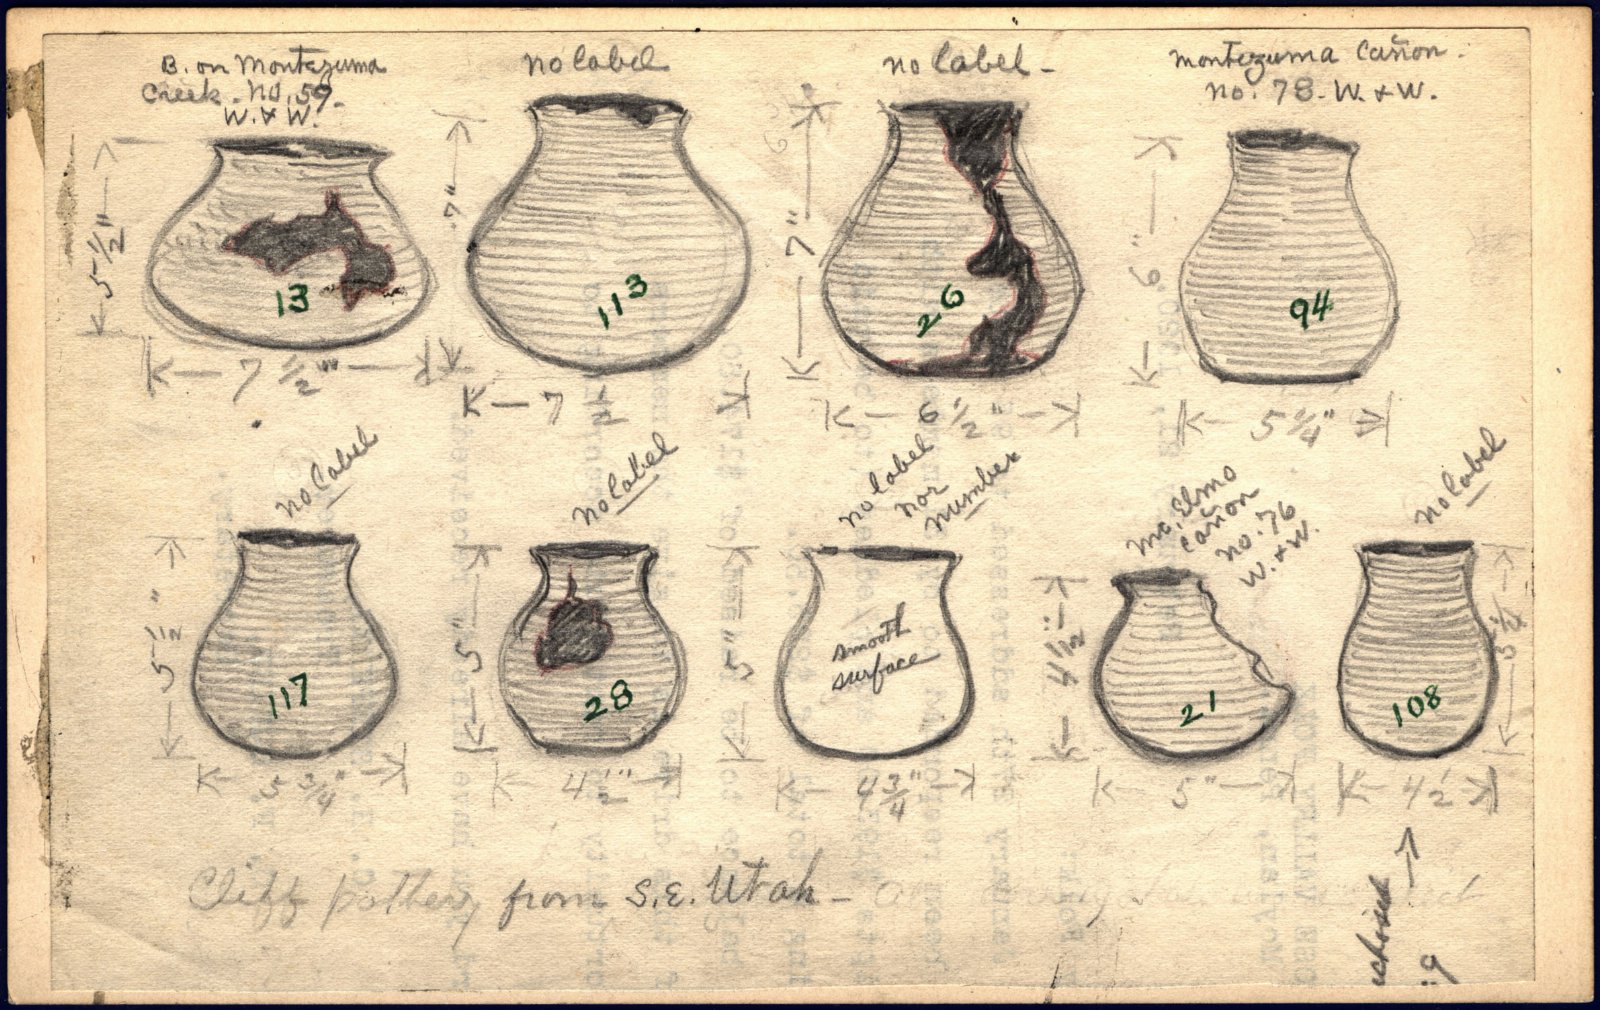 B. on Montezuma
Creek. No. 59.
W. & W.
no label
no label -
Montezuma Cañon.
No. 78. W. & W.
5 1/2"
7"
7"
6"
13
113
26
94
7 1/2"
7
6 1/2"
5 1/4"
no label
no label
no label
nor
number
Mc. Elmo
Cañon
No. 76
W. & W.
no label
5 1/2"
5"
5"
smooth
surface
4 1/2"
5 1/2
117
28
21
108
5 3/4"
4 1/2"
4 3/4"
5"
4 1/2
Cliff pottery from S.E. Utah -